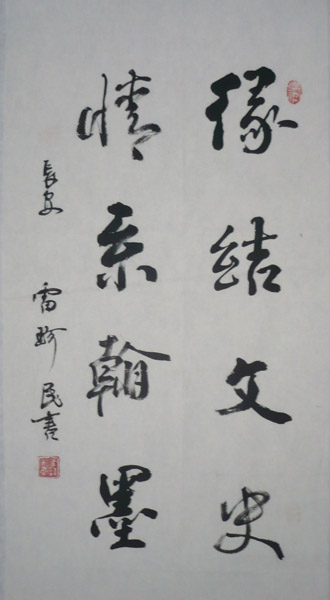 缘结文史
情系翰墨
长安 雷珍民书